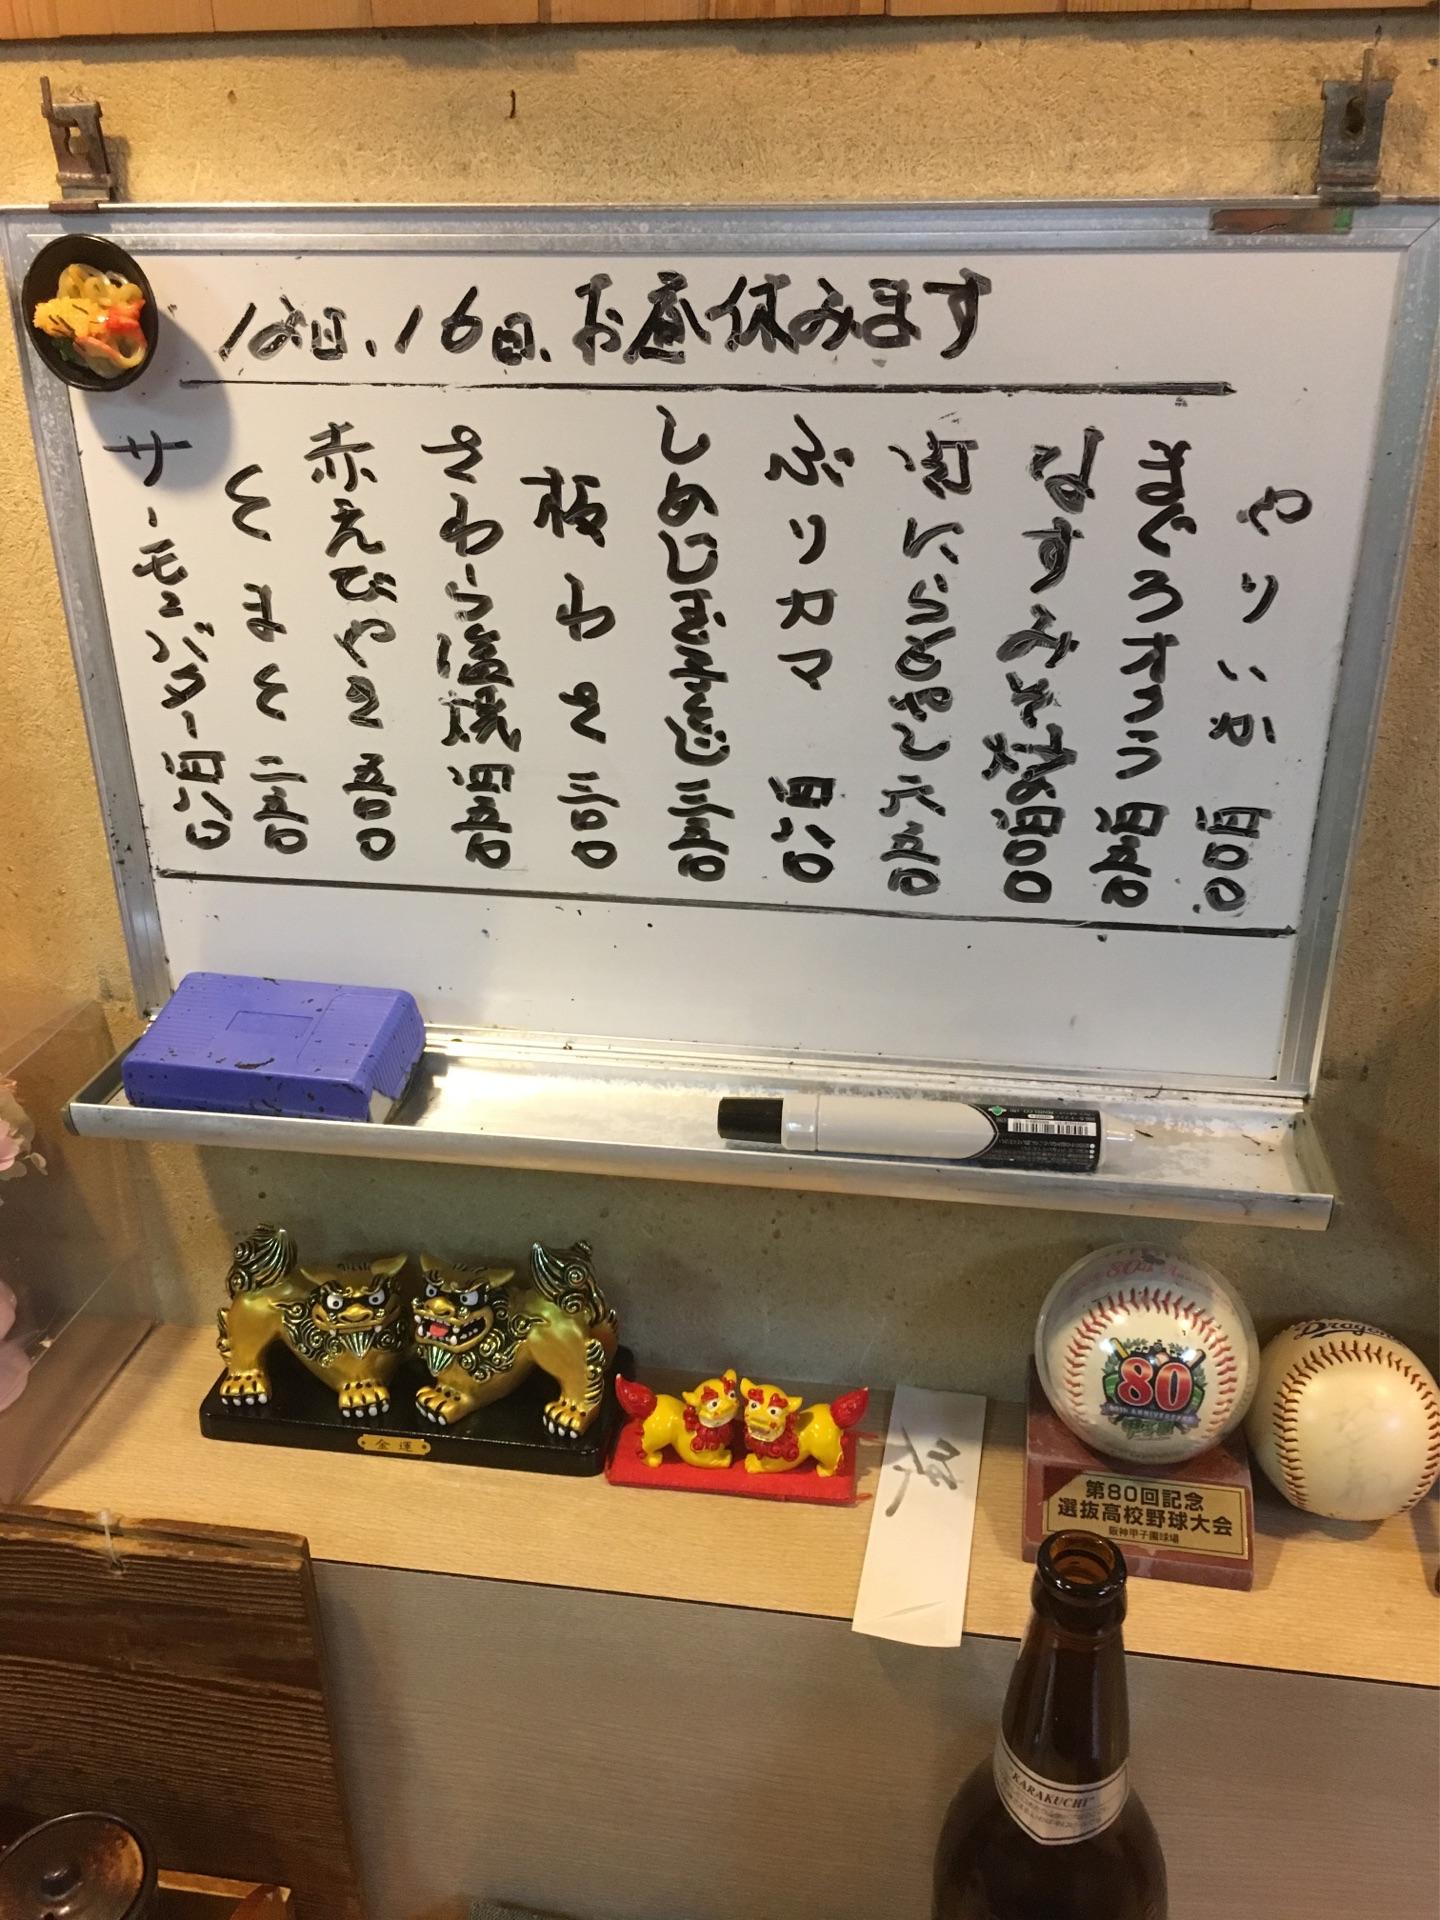 12日、16日、お昼休みます
やりいか 四〇〇
まぐろオクラ 四五〇
なすみそ炒め 四〇〇
にらもやし 六五〇
ぶりカマ 四八〇
しめじ玉子とじ 三五〇
板わさ 三〇〇
さわら塩焼 四五〇
赤えびやき 五〇〇
とまと 二五〇
サーモンバター 四八〇
金運
80
80TH ANNIVERSARY
第80回記念
選抜高校野球大会
阪神甲子園球場
Dragons
"KARAKUCHI"